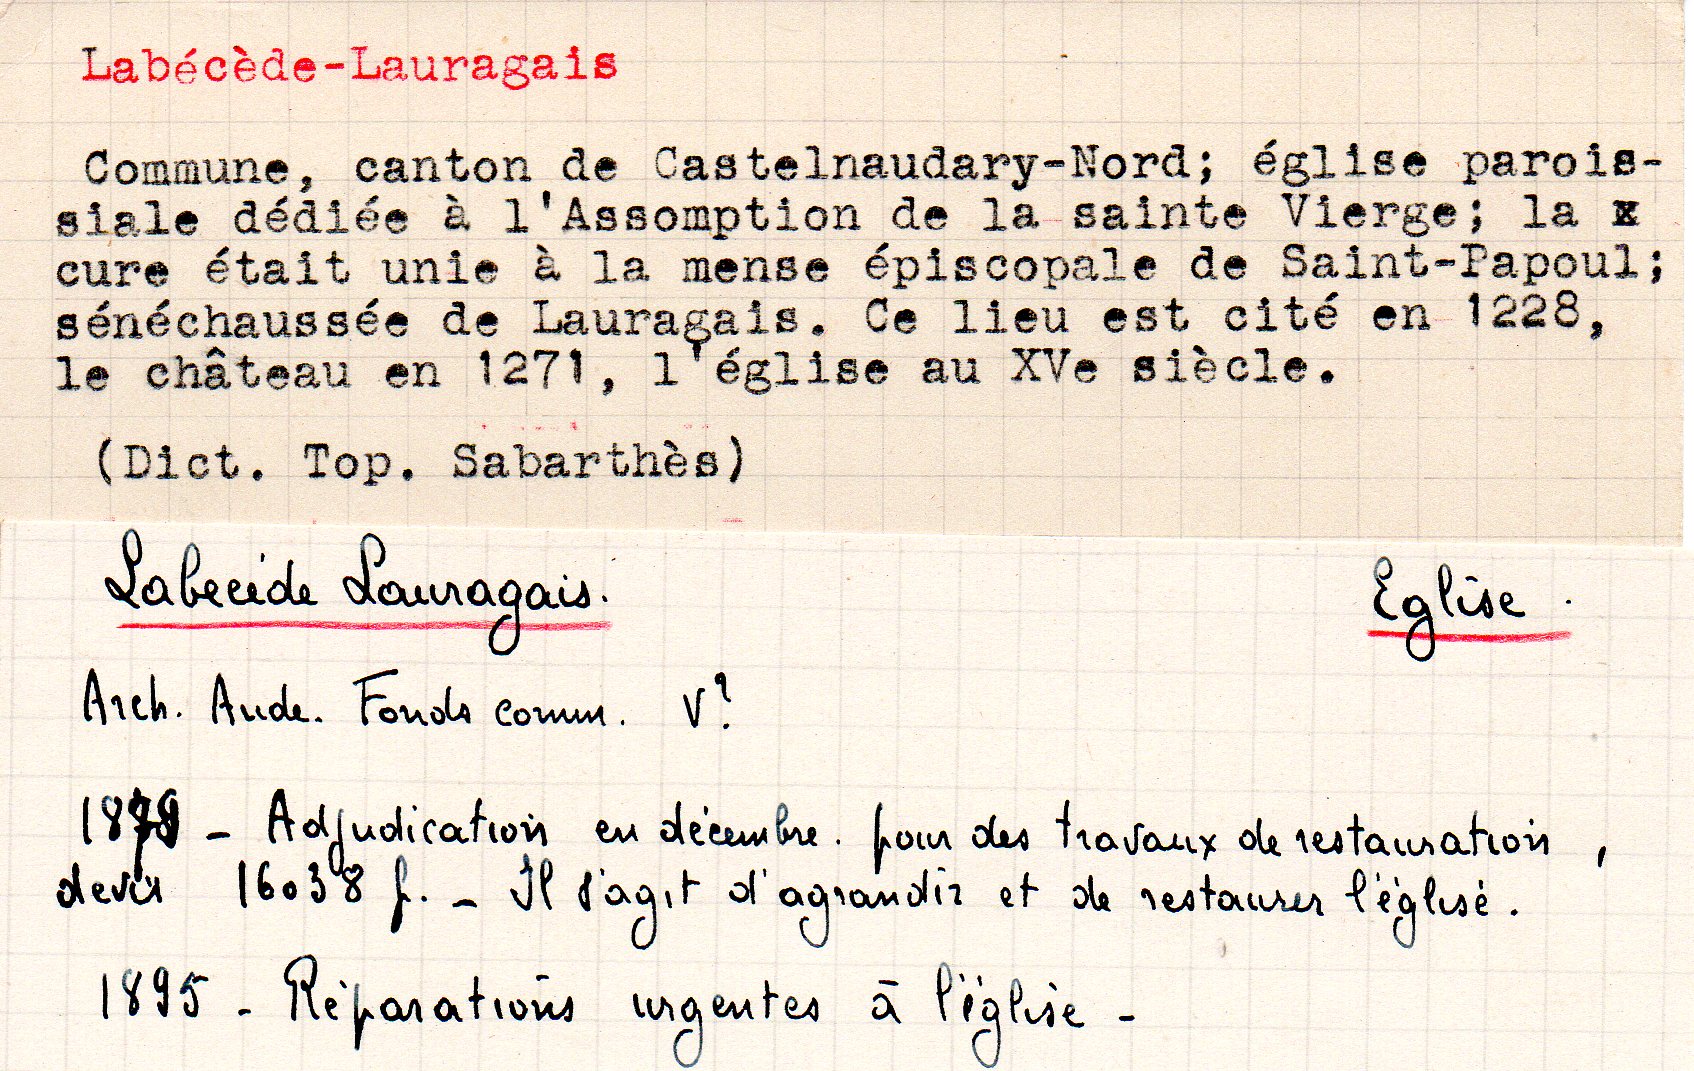 Labécède-Lauragais
Commune, canton de Castelnaudary-Nord; église parois-
siale dédiée à l'Assomption de la sainte Vierge; la x
cure était unie à la mense épiscopale de Saint-Papoul;
sénéchaussée de Lauragais. Ce lieu est cité en 1228,
le château en 1271, l'église au XVe siècle.
(Dict. Top. Sabarthès)
Labécède Lauragais. Eglise.
Arch. Aude. Fonds comm. V?
- Adjudication en décembre. pour des travaux de restauration,
devis 16038 f. - Il s'agit d'agrandir et de restaurer l'église.
1895 - Réparations urgentes à l'église -